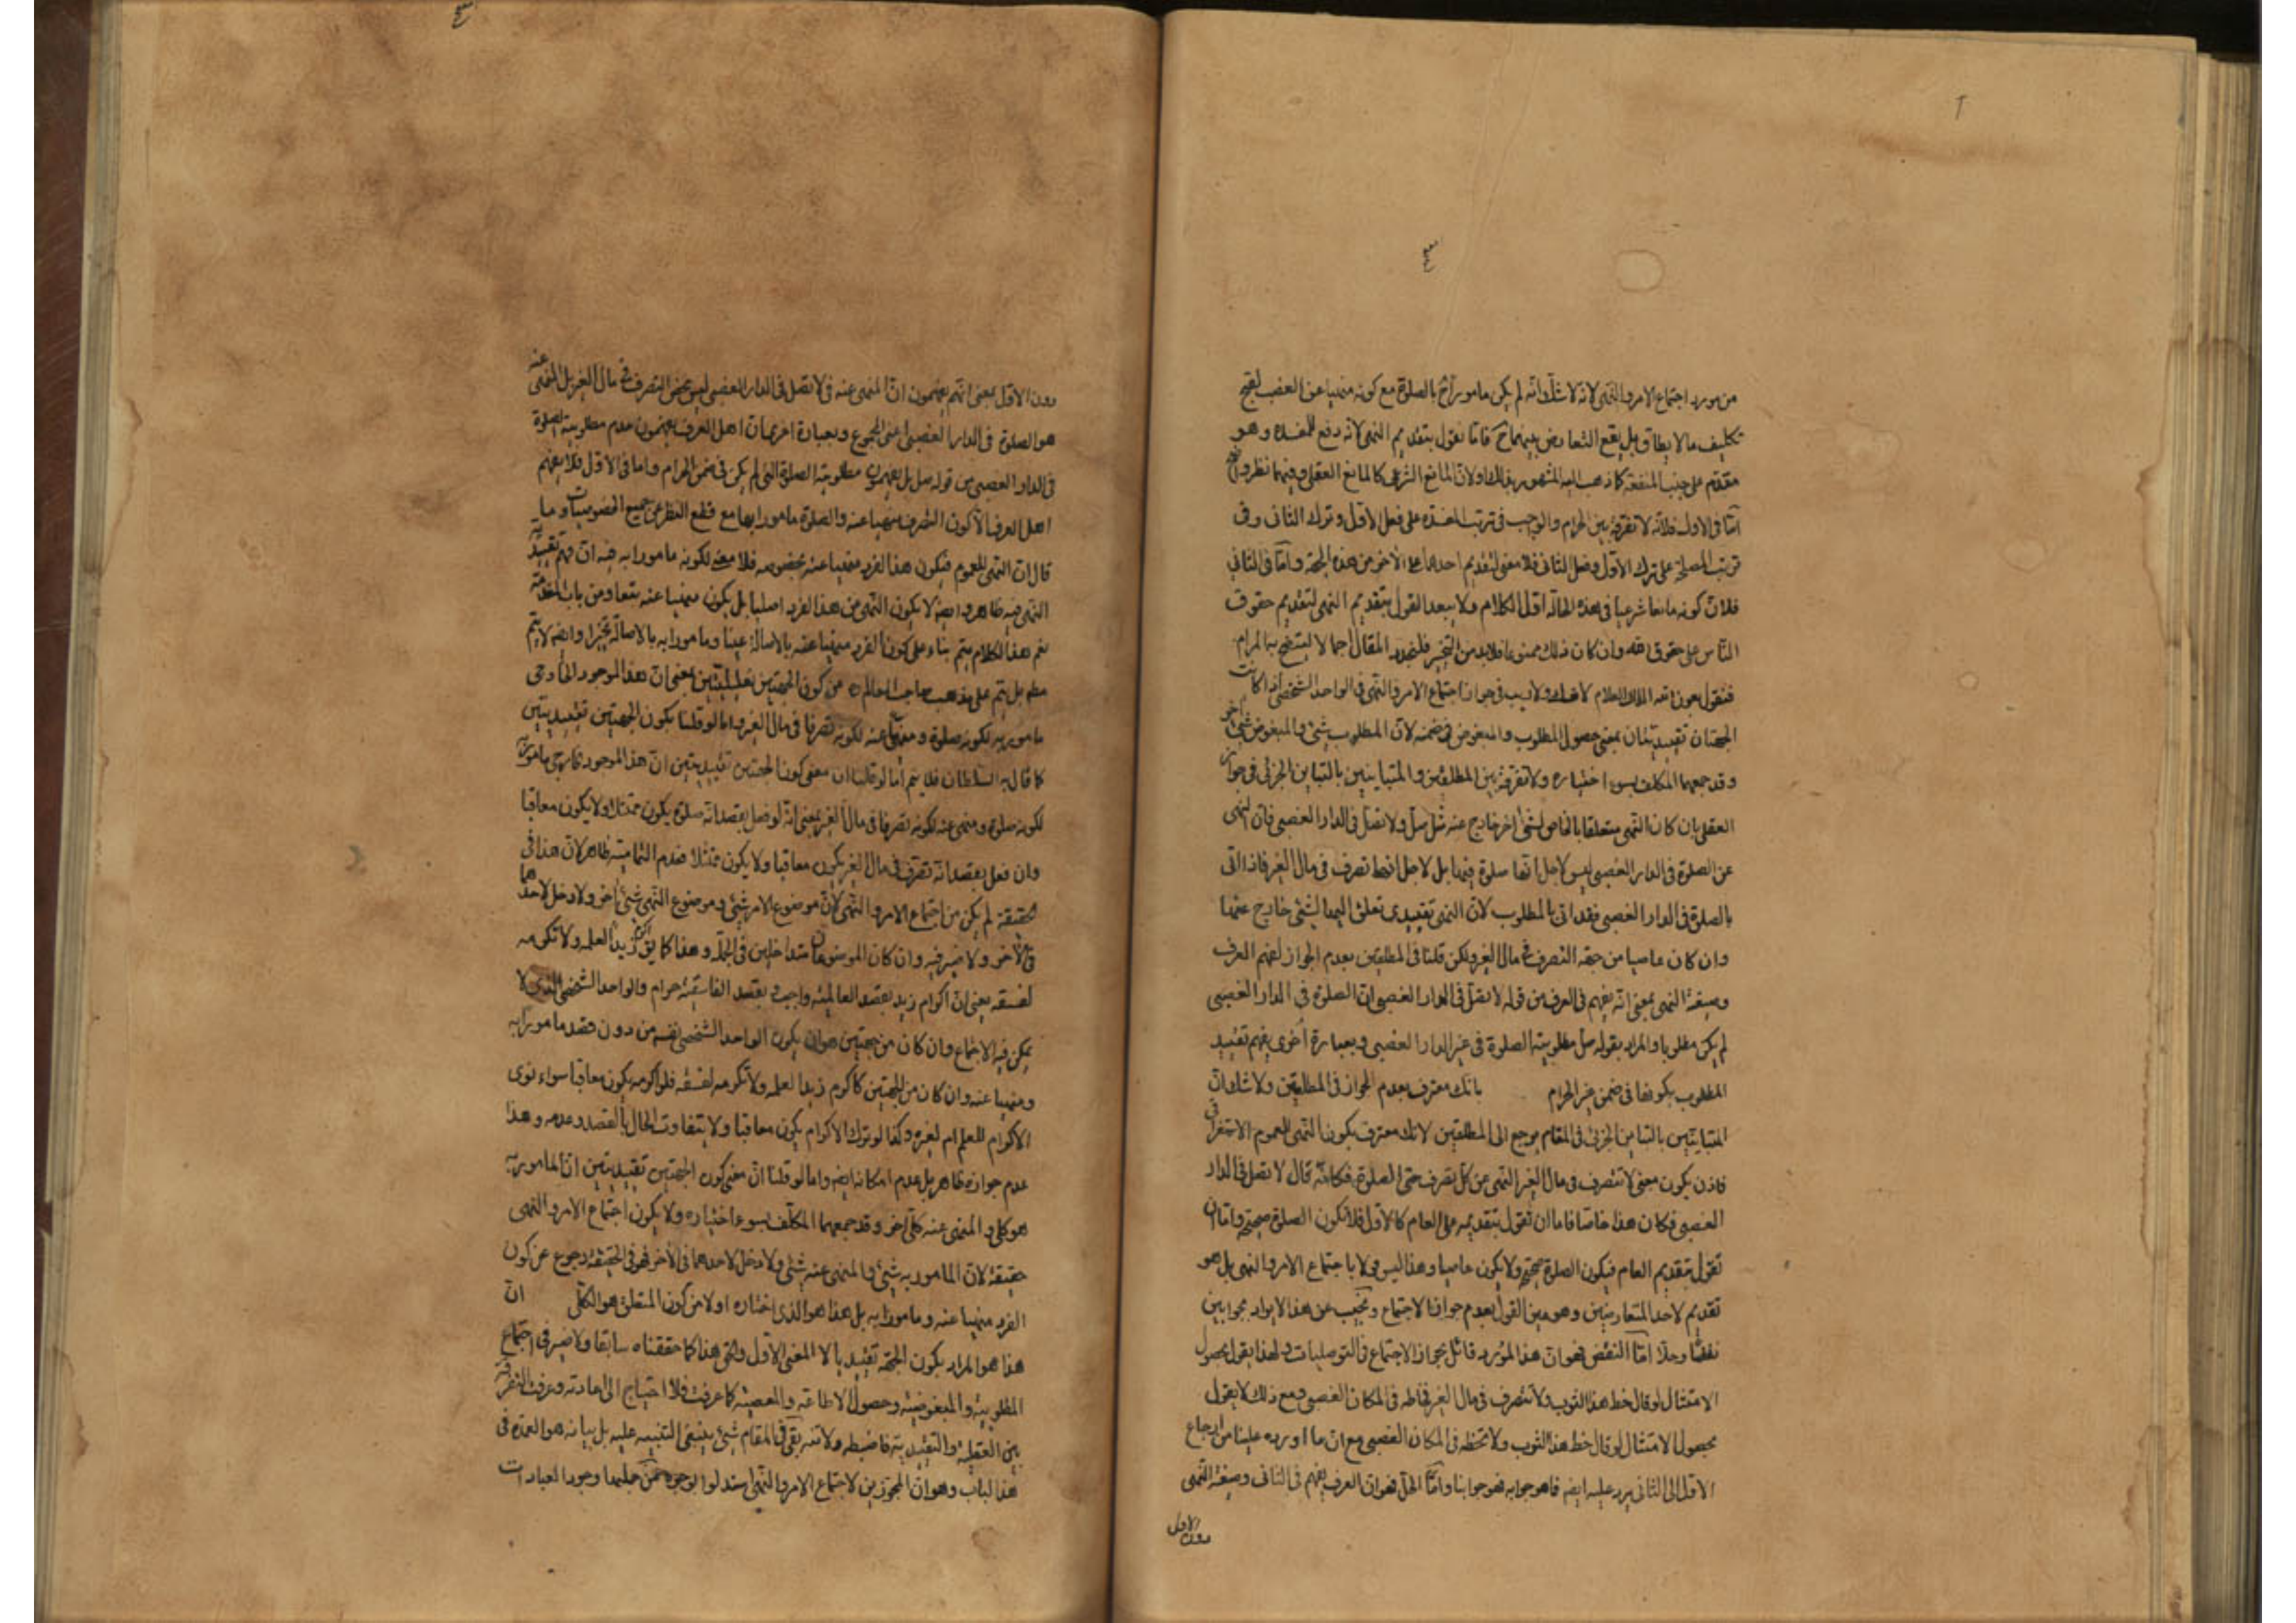 من مورد اجتماع الامر والنهى لانه لا شك انه لم يكن مامورا ح بالصلوة مع كونه منهيا عن الغصب لقبح
تكليف ما لا يطاق بل يقع التعارض بينهما ح فاما نقول بتقديم النهى لانه دفع للمفسدة وهو
مقدم على جلب المنفعة كما ذهب اليه المشهور لذلك ولان المانع الشرعى كالمانع العقلى وفيهما نظر واضح
اما فى الاول فلانه لا تفرقة بين الحرام والواجب فى ترتب المفسدة على فعل الاول وترك الثانى وفى
ترتب المصلحة على ترك الاول وفعل الثانى فلا معنى لتقديم احدهما على الآخر من هذه الجهة واما فى الثانى
فلان كونه مانعا شرعيا فى هذه الحالة اول الكلام ولا يبعد القول بتقديم النهى لتقديم حقوق
الناس على حقوق الله وان كان ذلك ممنوعا فلا بد من التخيير فلنجدد المقال اجمالا ليتضح به المرام
فنقول بعون الله الملك العلام لا شك ولا ريب فى جواز اجتماع الامر والنهى فى الواحد الشخصى اذا كانت
الجهتان تقييديتان بمعنى حصول المطلوب والمبغوض فى ضمنه لان المطلوب شئ والمبغوض شئ آخر
وقد جمعهما المكلف بسوء اختياره ولا تفرقة بين المطلقين والمتباينين بالتباين الجزئى فى جواز
العقل بان كان النهى متعلقا بالخاص لشئ اخر خارج عنه مثل صل ولا تصل فى الدار الغصبى فان النهى
عن الصلوة فى الدار الغصبى ليس لاجل انها صلوة فيها بل لاجل انها تصرف فى مال الغير فاذا اتى
بالصلوة فى الدار الغصبى فقد اتى بالمطلوب لان النهى تقييدى تعلق اليها لشئ خارج عنها
وان كان عاصيا من جهة التصرف فى مال الغير ولكن قلنا فى المطلقين بعدم الجواز لفهم العرف
وصيغة النهى بمعنى انه يفهم فى العرف من قوله لا تصل فى الدار الغصبى ان الصلوة فى الدار الغصبى
لم يكن مطلوبا والمراد بقوله صل مطلوبية الصلوة فى غير الدار الغصبى وبعبارة اخرى يفهم تقييد
المطلوب بكونها فى ضمن غير الحرام بانك معترف بعدم الجواز فى المطلقين ولا شك ان
المتباينين بالتباين الجزئى فى المقام يرجع الى المطلقين لانك معترف بكون النهى للعموم الاستغراقى
فاذن يكون معنى لا تتصرف فى مال الغير النهى عن كل تصرف حتى الصلوة فكانه قال لا تصل فى الدار
الغصبى فكان هذا خاصا فاما ان تقول بتقديمه على العام كالاول فلا تكون الصلوة صحيحة واما ان
تقول بتقديم العام فيكون الصلوة صحيحة ولا يكون عاصيا وهذا ليس قولا باجتماع الامر والنهى بل هو
تقديم لاحد المتعارضين وهو عين القول بعدم جواز الاجتماع ونجيب عن هذا الايراد بجوابين
نقضا وحلا اما النقض فهو ان هذا المورد قائل بجواز الاجتماع فى التوصليات ولهذا يقول بحصول
الامتثال لو قال خط هذا الثوب ولا تتصرف فى مال الغير فخاطه فى المكان الغصبى ومع ذلك لا يقول
بحصول الامتثال لو قال خط هذا الثوب ولا تخطه فى المكان الغصبى مع ان ما اورده علينا من ارجاع
الاول الى الثانى يرد عليه ايضا فما هو جوابه فهو جوابنا واما الحل فهو ان العرف يفهم فى الثانى وصيغة النهى
دون الاول
دون الاول بمعنى انهم يفهمون ان المنهى عنه فى لا تصل فى الدار الغصبى ليس محض التصرف فى مال الغير بل المنهى عنه
هو الصلوة فى الدار الغصبى اعنى المجموع وبعبارة اخرى ان اهل العرف يفهمون عدم مطلوبية الصلوة
فى الدار الغصبى من قوله صل بل يفهمون مطلوبية الصلوة التى لم يكن فى ضمن الحرام واما فى الاول فلا يفهم
اهل العرف الا كون التصرف منهيا عنه والصلوة مامورا بها مع قطع النظر عن جميع الخصوصيات وما
قال ان النهى للعموم فيكون هذا الفرد منهيا عنه بخصوصه فلا معنى لكونه مامورا به فيه ان فهم تقييدية
النهى فيه ظاهر وايضا لا يكون النهى عن هذا الفرد اصليا بل يكون منهيا عنه تبعا ومن باب المقدمة
نعم هذا الكلام يتم بناء على كون الفرد منهيا عنه بالاصالة عينا ومامورا به بالاصالة تخييرا وايضا لا يتم
مط بل يتم على مذهب صاحب المعالم ره من كون الجهتين تعليليتين بمعنى ان هذا الموجود الخارجى
مامور به لكونه صلوة ومنهى عنه لكونه تصرفا فى مال الغير واما لو قلنا بكون الجهتين تقييديتين
كما قال به السلطان فلا يتم اما لو قلنا ان معنى كون الجهتين تقييديتين ان هذا الموجود خارجى مامور به
لكونه صلوة ومنهى عنه لكونه تصرفا فى مال الغير بمعنى انه لو فعل بقصد انه صلوة يكون ممتثلا ولا يكون معاقبا
وان فعل بقصد انه تصرف فى مال الغير يكون معاقبا ولا يكون ممتثلا فعدم التمامية ظاهر لان هذا فى
الحقيقة لم يكن من اجتماع الامر والنهى لان موضوع الامر شئ وموضوع النهى شئ آخر ولا دخل لاحدهما
فى الآخر ولا ضير فيه وان كان الموضوعان متداخلين فى الجملة وهذا كما يق اكرم زيدا لعلمه ولا تكرمه
لفسقه يعنى ان اكرام زيد بقصد العالمية واجب وبقصد الفاسقية حرام والواحد الشخصى الذى لا
يمكن فيه الاجتماع وان كان من جهتين هو ان يكون الواحد الشخصى نفسه من دون قصد مامورا به
ومنهيا عنه وان كان من الجهتين كاكرم زيدا لعلمه ولا تكرمه لفسقه فلو اكرمه يكون معاقبا سواء نوى
الاكرام للعلم ام لغيره وكذا لو ترك الاكرام يكون معاقبا ولا يتفاوت الحال بالقصد وعدمه وهذا
عدم جوازه ظاهر بل عدم امكانه ايضا واما لو قلنا ان معنى كون الجهتين تقييديتين ان المامور به
هو كلى والمنهى عنه كلى آخر وقد جمعهما المكلف بسوء اختياره ولا يكون اجتماع الامر والنهى
حقيقة لان المامور به شئ والمنهى عنه شئ ولا دخل لاحدهما فى الآخر فهو فى الحقيقة رجوع عن كون
الفرد منهيا عنه ومامورا به بل هذا هو الذى اختاره اولا من كون المتعلق هو الكلى ان
هذا هو المراد بكون الجهة تقييدية لا المعنى الاول والحق هذا كما حققناه سابقا ولا ضير فى اجتماع
المطلوبية والمبغوضية وحصول الاطاعة والمعصية كما عرفت فلا احتياج الى اعادته وعرفت التفرقة
بين العقلية والتقييدية فاضبطه ولا تنسه بقى فى المقام شئ ينبغى التنبيه عليه بل بيانه هو العمدة فى
هذا الباب وهو ان المجوزين لاجتماع الامر والنهى استدلوا بوجوه من جملتها وجود العبادات